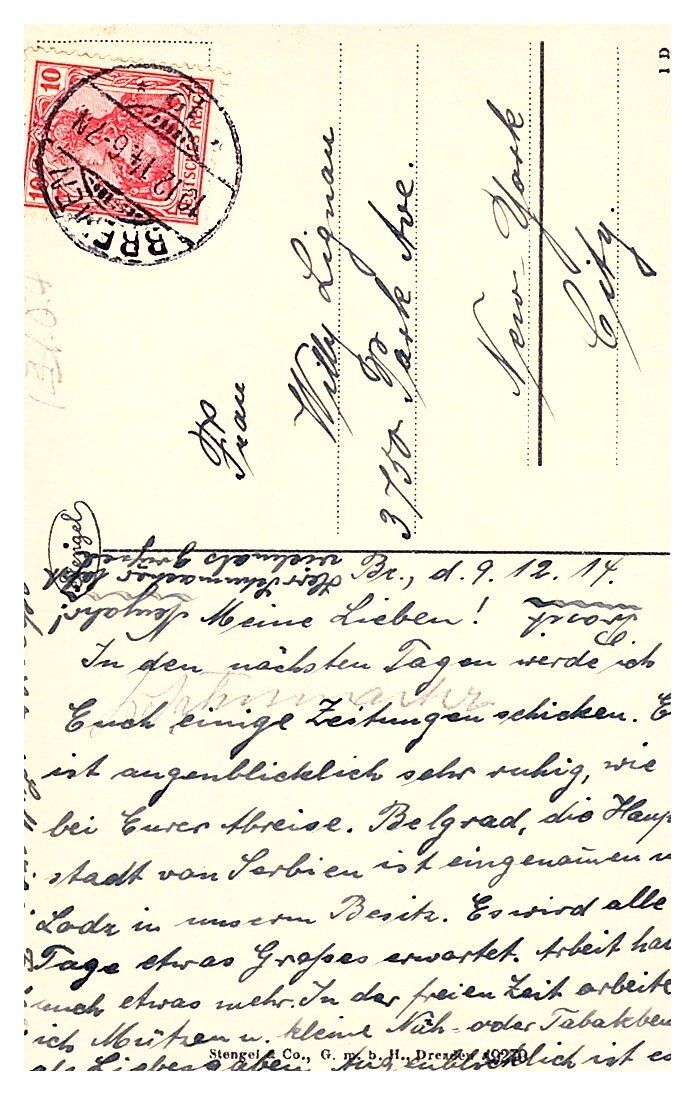 10
10
DEUTSCHES REICH
BREMEN
9.12.14.6-7N
1 D
Frau
Willy Lignau
3750 Park Ave.
New-York
City.
Stengel
Herr Schumacher läßt
vielmals grüßen
Br., d. 9. 12. 14.
Prosit
Neujahr!
Meine Lieben!
In den nächsten Tagen werde ich
Euch einige Zeitungen schicken. E
ist augenblicklich sehr ruhig, wie
bei Eurer Abreise. Belgrad, die Haup
stadt von Serbien ist eingenom̄en u
Lodz in unserm Besitz. Es wird alle
Tage etwas Großes erwartet. Arbeit hab
auch etwas mehr. In der freien Zeit arbeite
ich Mützen u. kleine Näh- oder Tabakbeu
als Liebesgaben. Augenblicklich ist es
Stengel & Co., G. m. b. H., Dresden 49270